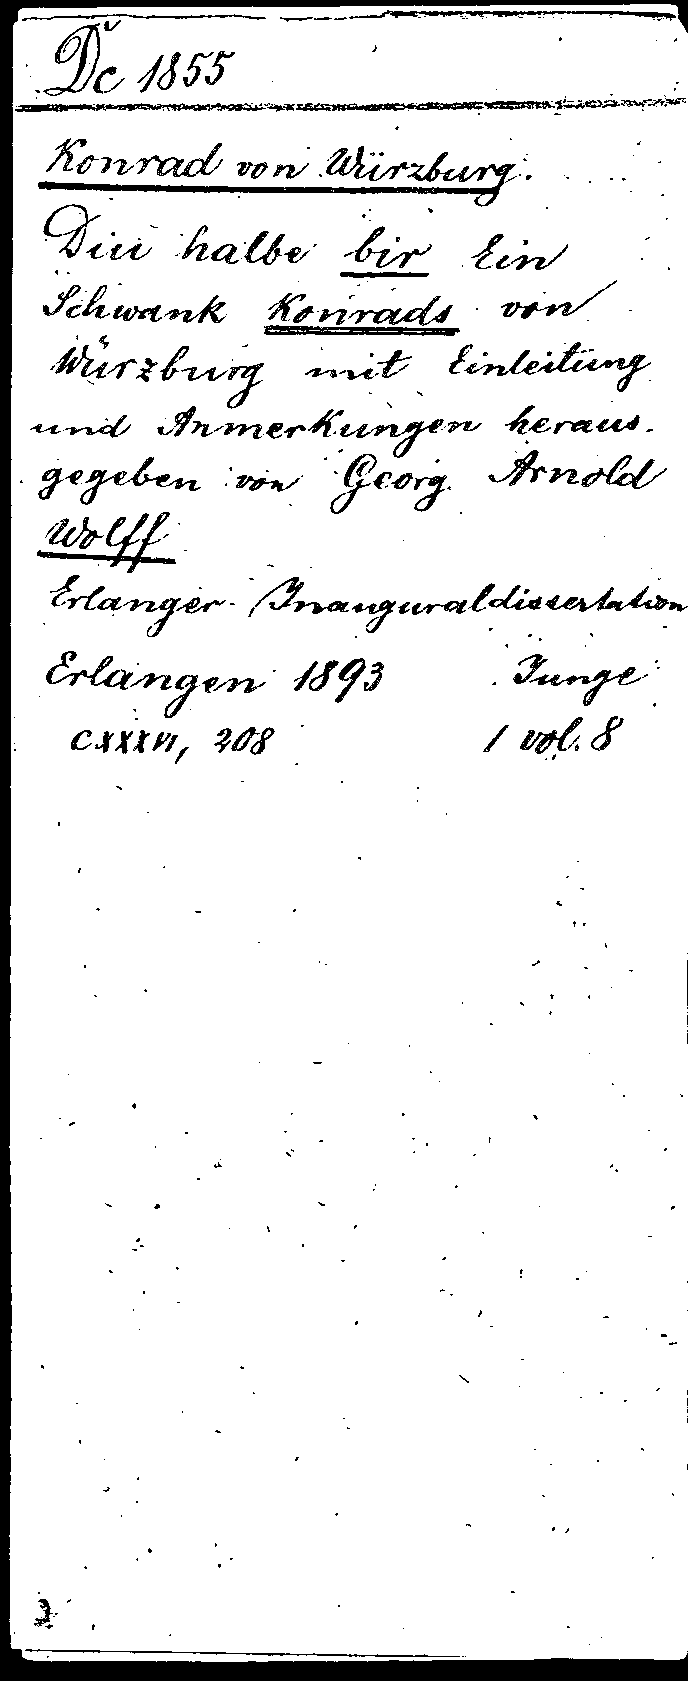 Dc 1855
Konrad von Würzburg.
Diu halbe bir Ein
Schwank Konrads von
Würzburg mit Einleitung
und Anmerkungen heraus-
gegeben von Georg Arnold
Wolff
Erlanger Inauguraldissertation
Erlangen 1893 Junge
CXXXVI, 208 1 vol. 8